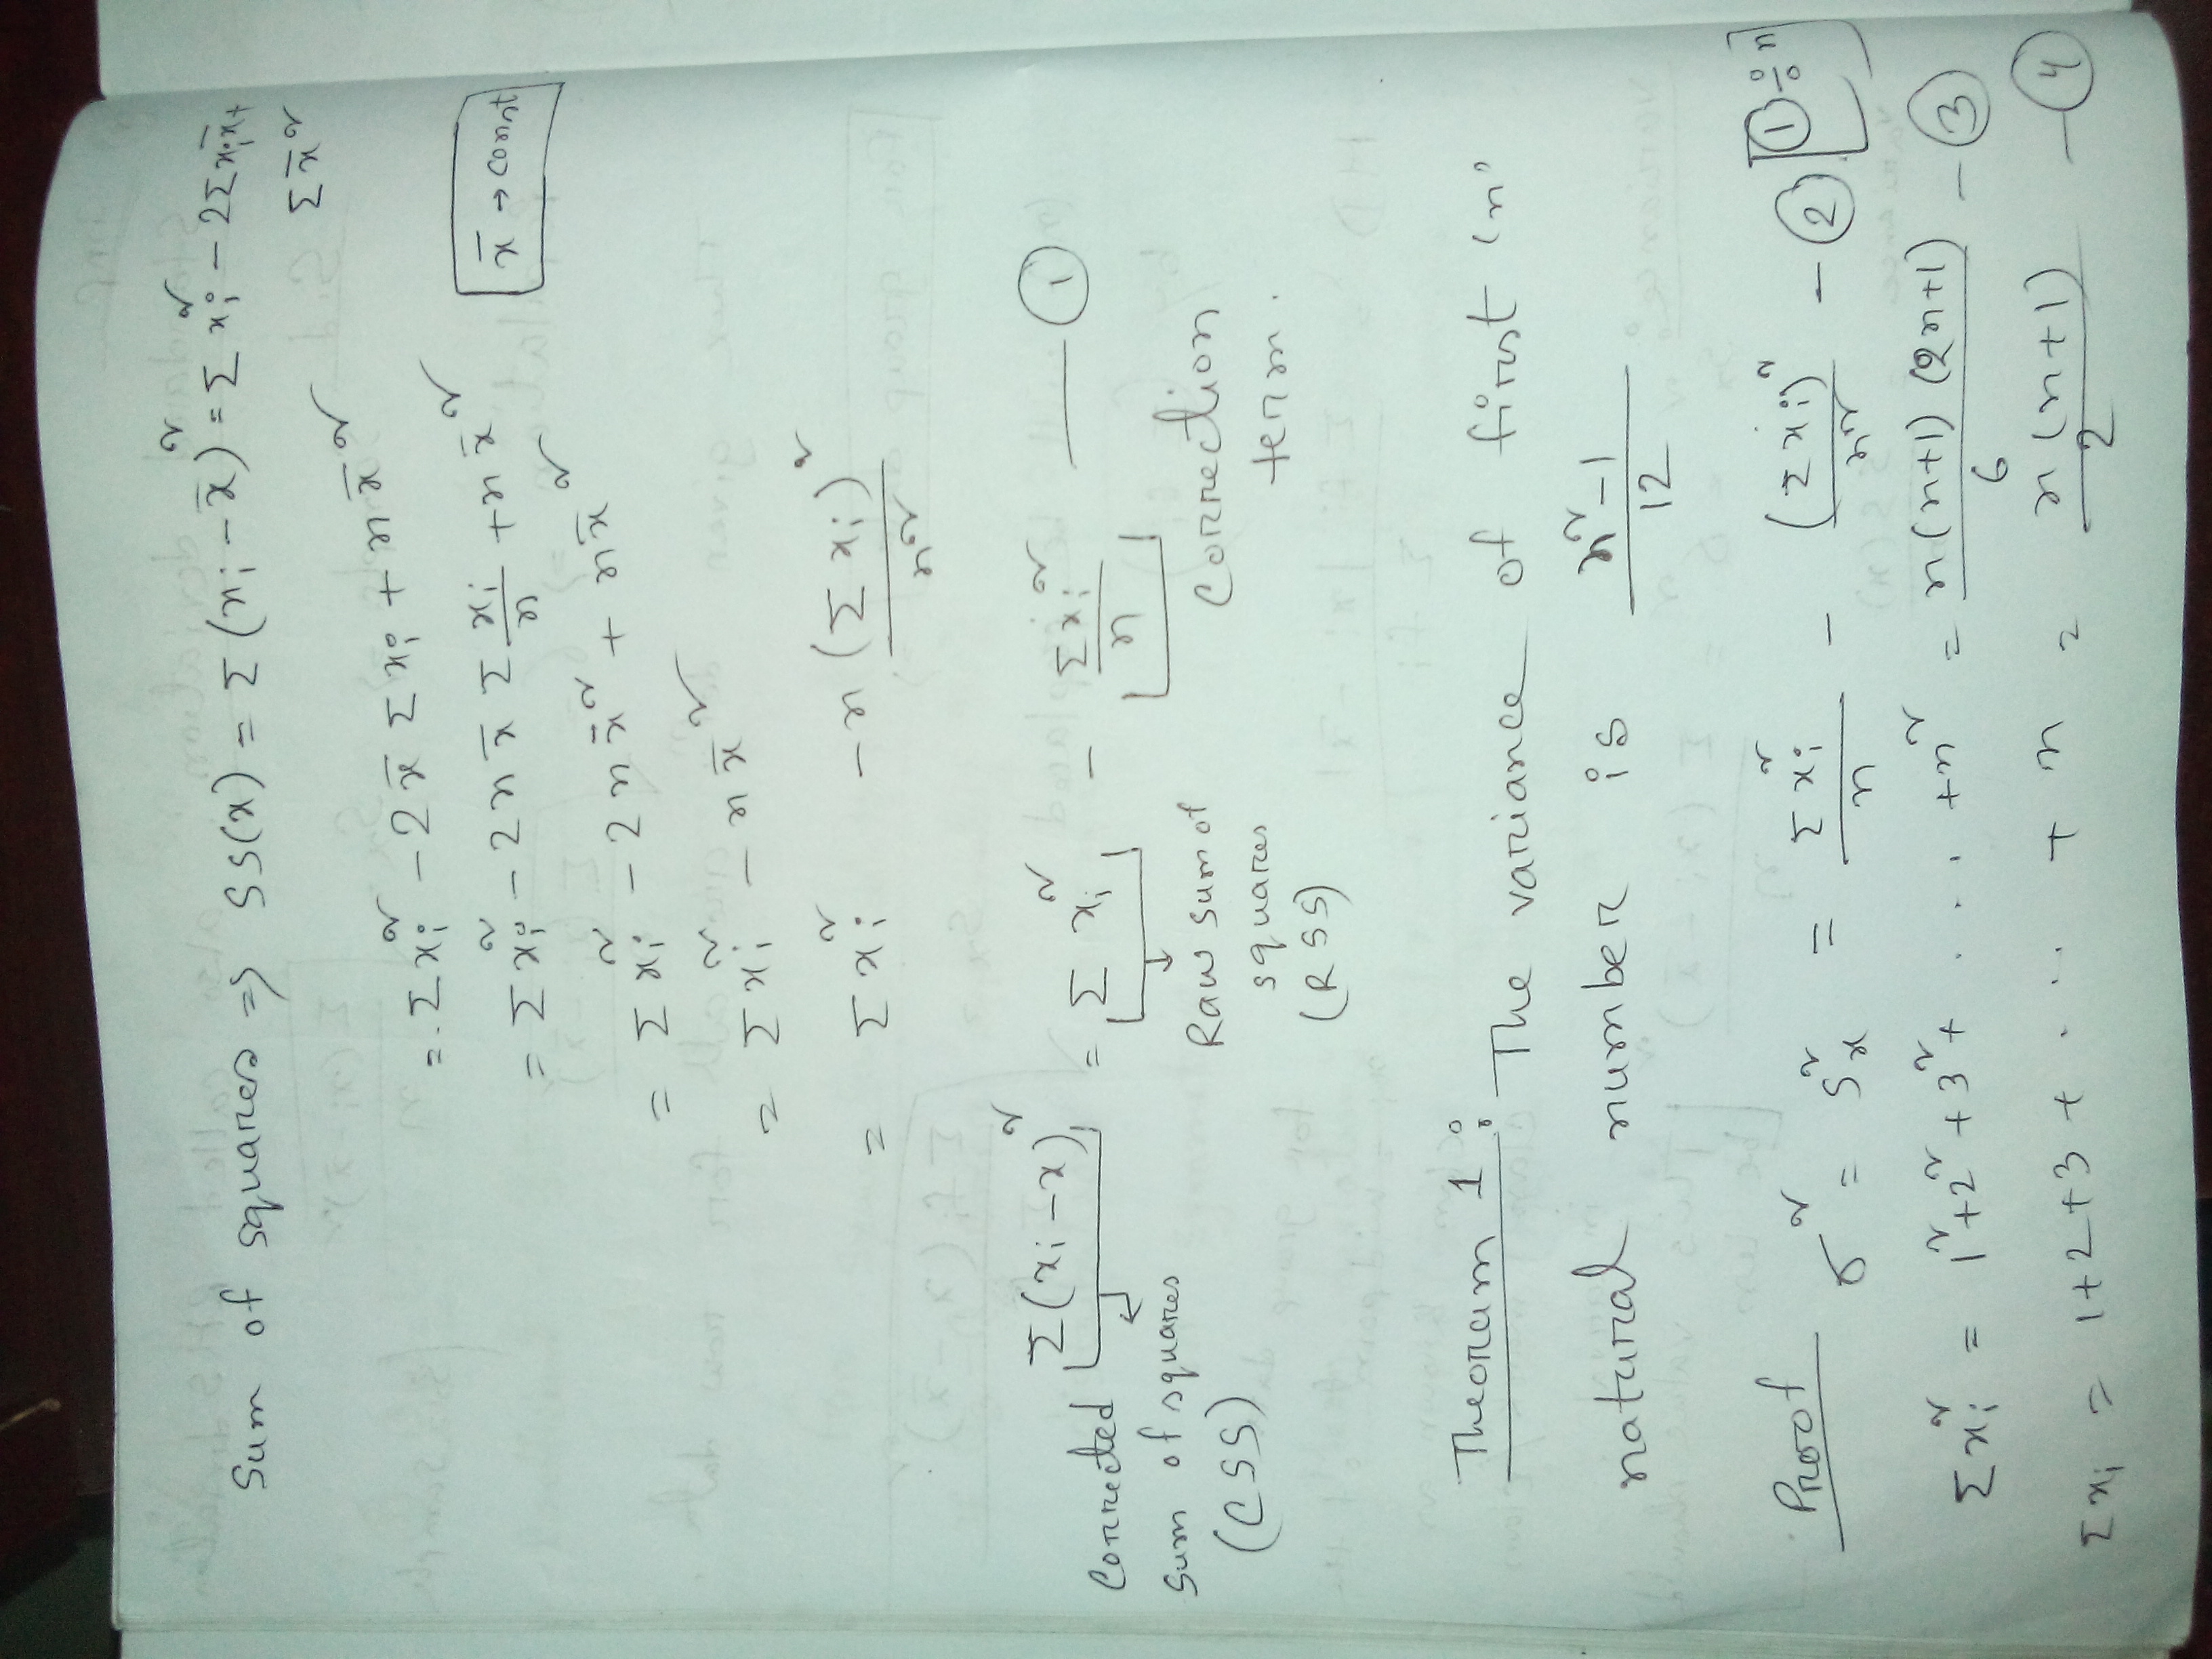 Sum of squares => SS(x) = Σ(xi - x̄)² = Σ xi² - 2Σ xi x̄ +
Σ x̄²
= Σ xi² - 2 x̄ Σ xi + n x̄²
x̄ → const
= Σ xi² - 2 n x̄ Σ xi/n + n x̄²
= Σ xi² - 2 n x̄² + n x̄²
= Σ xi² - n x̄²
= Σ xi² - n (Σ xi)²/n²
Σ(xi - x)² = Σ xi² - Σxi²/n — ①
Corrected Sum of squares (CSS)
Raw sum of squares (RSS)
Correction term.
Theoram 1: The variance of first 'n'
natural number is n²-1/12
Proof σ² = S²x = Σ xi²/n - (Σ xi)²/n² - ② [① ÷ n]
Σ xi² = 1² + 2² + 3² + .... + n² = n(n+1)(2n+1)/6 - ③
Σ xi = 1 + 2 + 3 + .... + n = n(n+1)/2 - ④